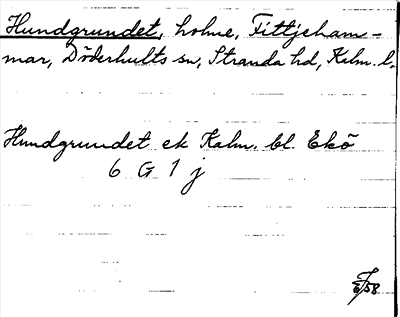 Hundgrundet, holme, Fittjeham-
mar, Döderhults sn, Stranda hd, Kalm. l.
Hundgrundet ek Kalm. bl. Ekö
6 G 1 j